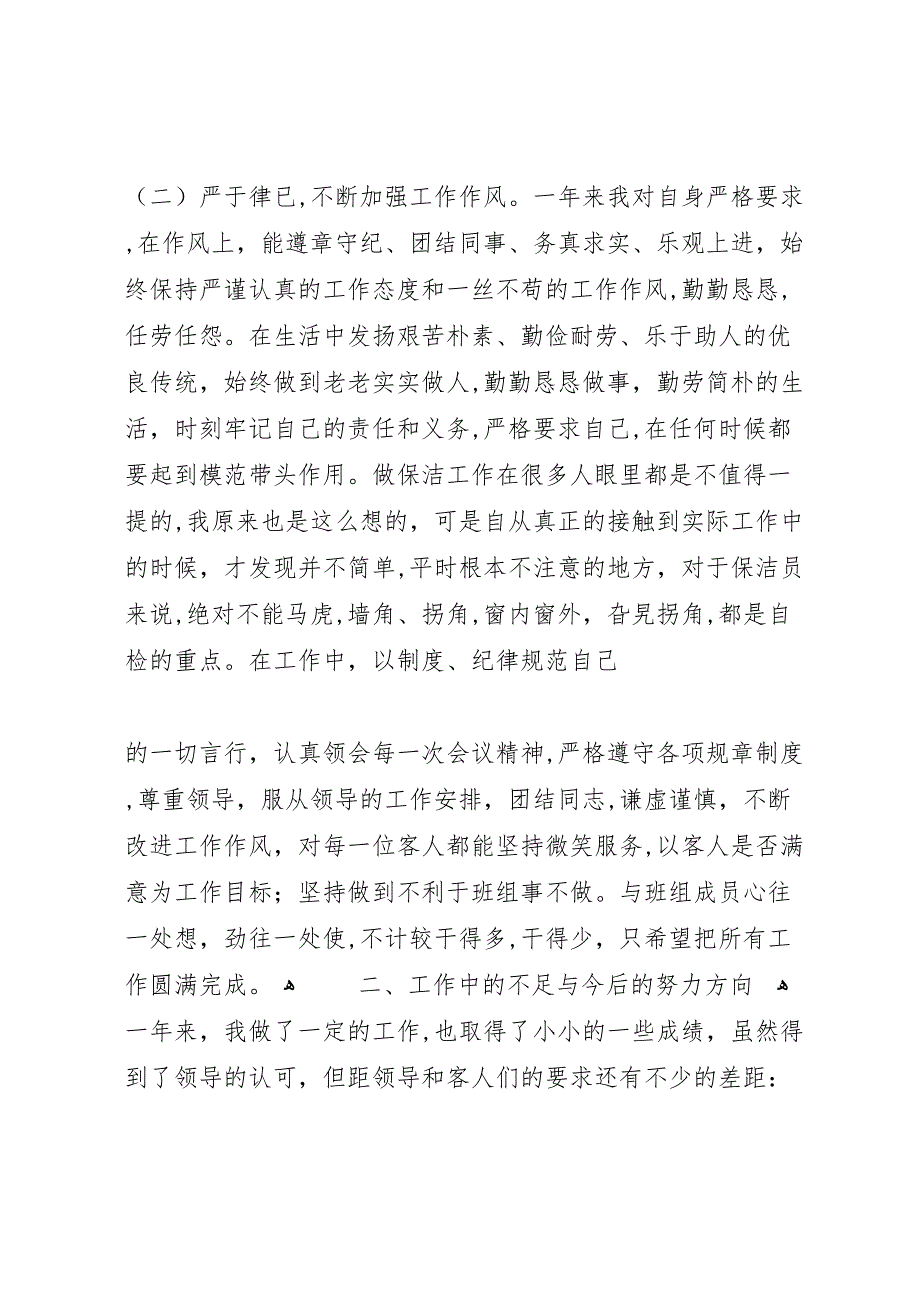 （二）严于律已,不断加强工作作风。一年来我对自身严格要求
,在作风上，能遵章守纪、团结同事、务真求实、乐观上进，始
终保持严谨认真的工作态度和一丝不苟的工作作风,勤勤恳恳,
任劳任怨。在生活中发扬艰苦朴素、勤俭耐劳、乐于助人的优
良传统，始终做到老老实实做人,勤勤恳恳做事，勤劳简朴的生
活，时刻牢记自己的责任和义务,严格要求自己,在任何时候都
要起到模范带头作用。做保洁工作在很多人眼里都是不值得一
提的,我原来也是这么想的，可是自从真正的接触到实际工作中
的时候，才发现并不简单,平时根本不注意的地方，对于保洁员
来说,绝对不能马虎,墙角、拐角,窗内窗外，旮旯拐角,都是自
检的重点。在工作中，以制度、纪律规范自己
的一切言行，认真领会每一次会议精神,严格遵守各项规章制度
,尊重领导，服从领导的工作安排，团结同志,谦虚谨慎，不断
改进工作作风，对每一位客人都能坚持微笑服务,以客人是否满
意为工作目标；坚持做到不利于班组事不做。与班组成员心往
一处想，劲往一处使,不计较干得多,干得少，只希望把所有工
作圆满完成。 ﻫ 二、工作中的不足与今后的努力方向 ﻫ
一年来，我做了一定的工作,也取得了小小的一些成绩，虽然得
到了领导的认可，但距领导和客人们的要求还有不少的差距：